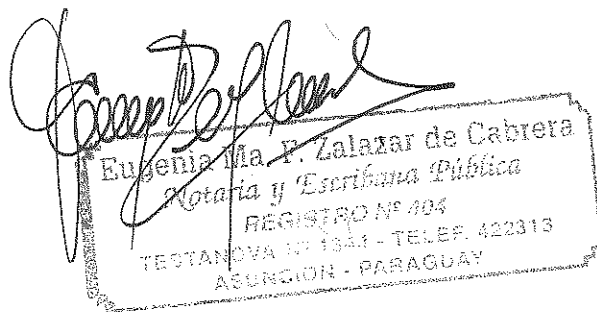 Eugenia Ma. F. Zalazar de Cabrera
Notaria y Escribana Pública
REGISTRO Nº 404
TESTANOVA Nº - TELEF. 422313
ASUNCION - PARAGUAY